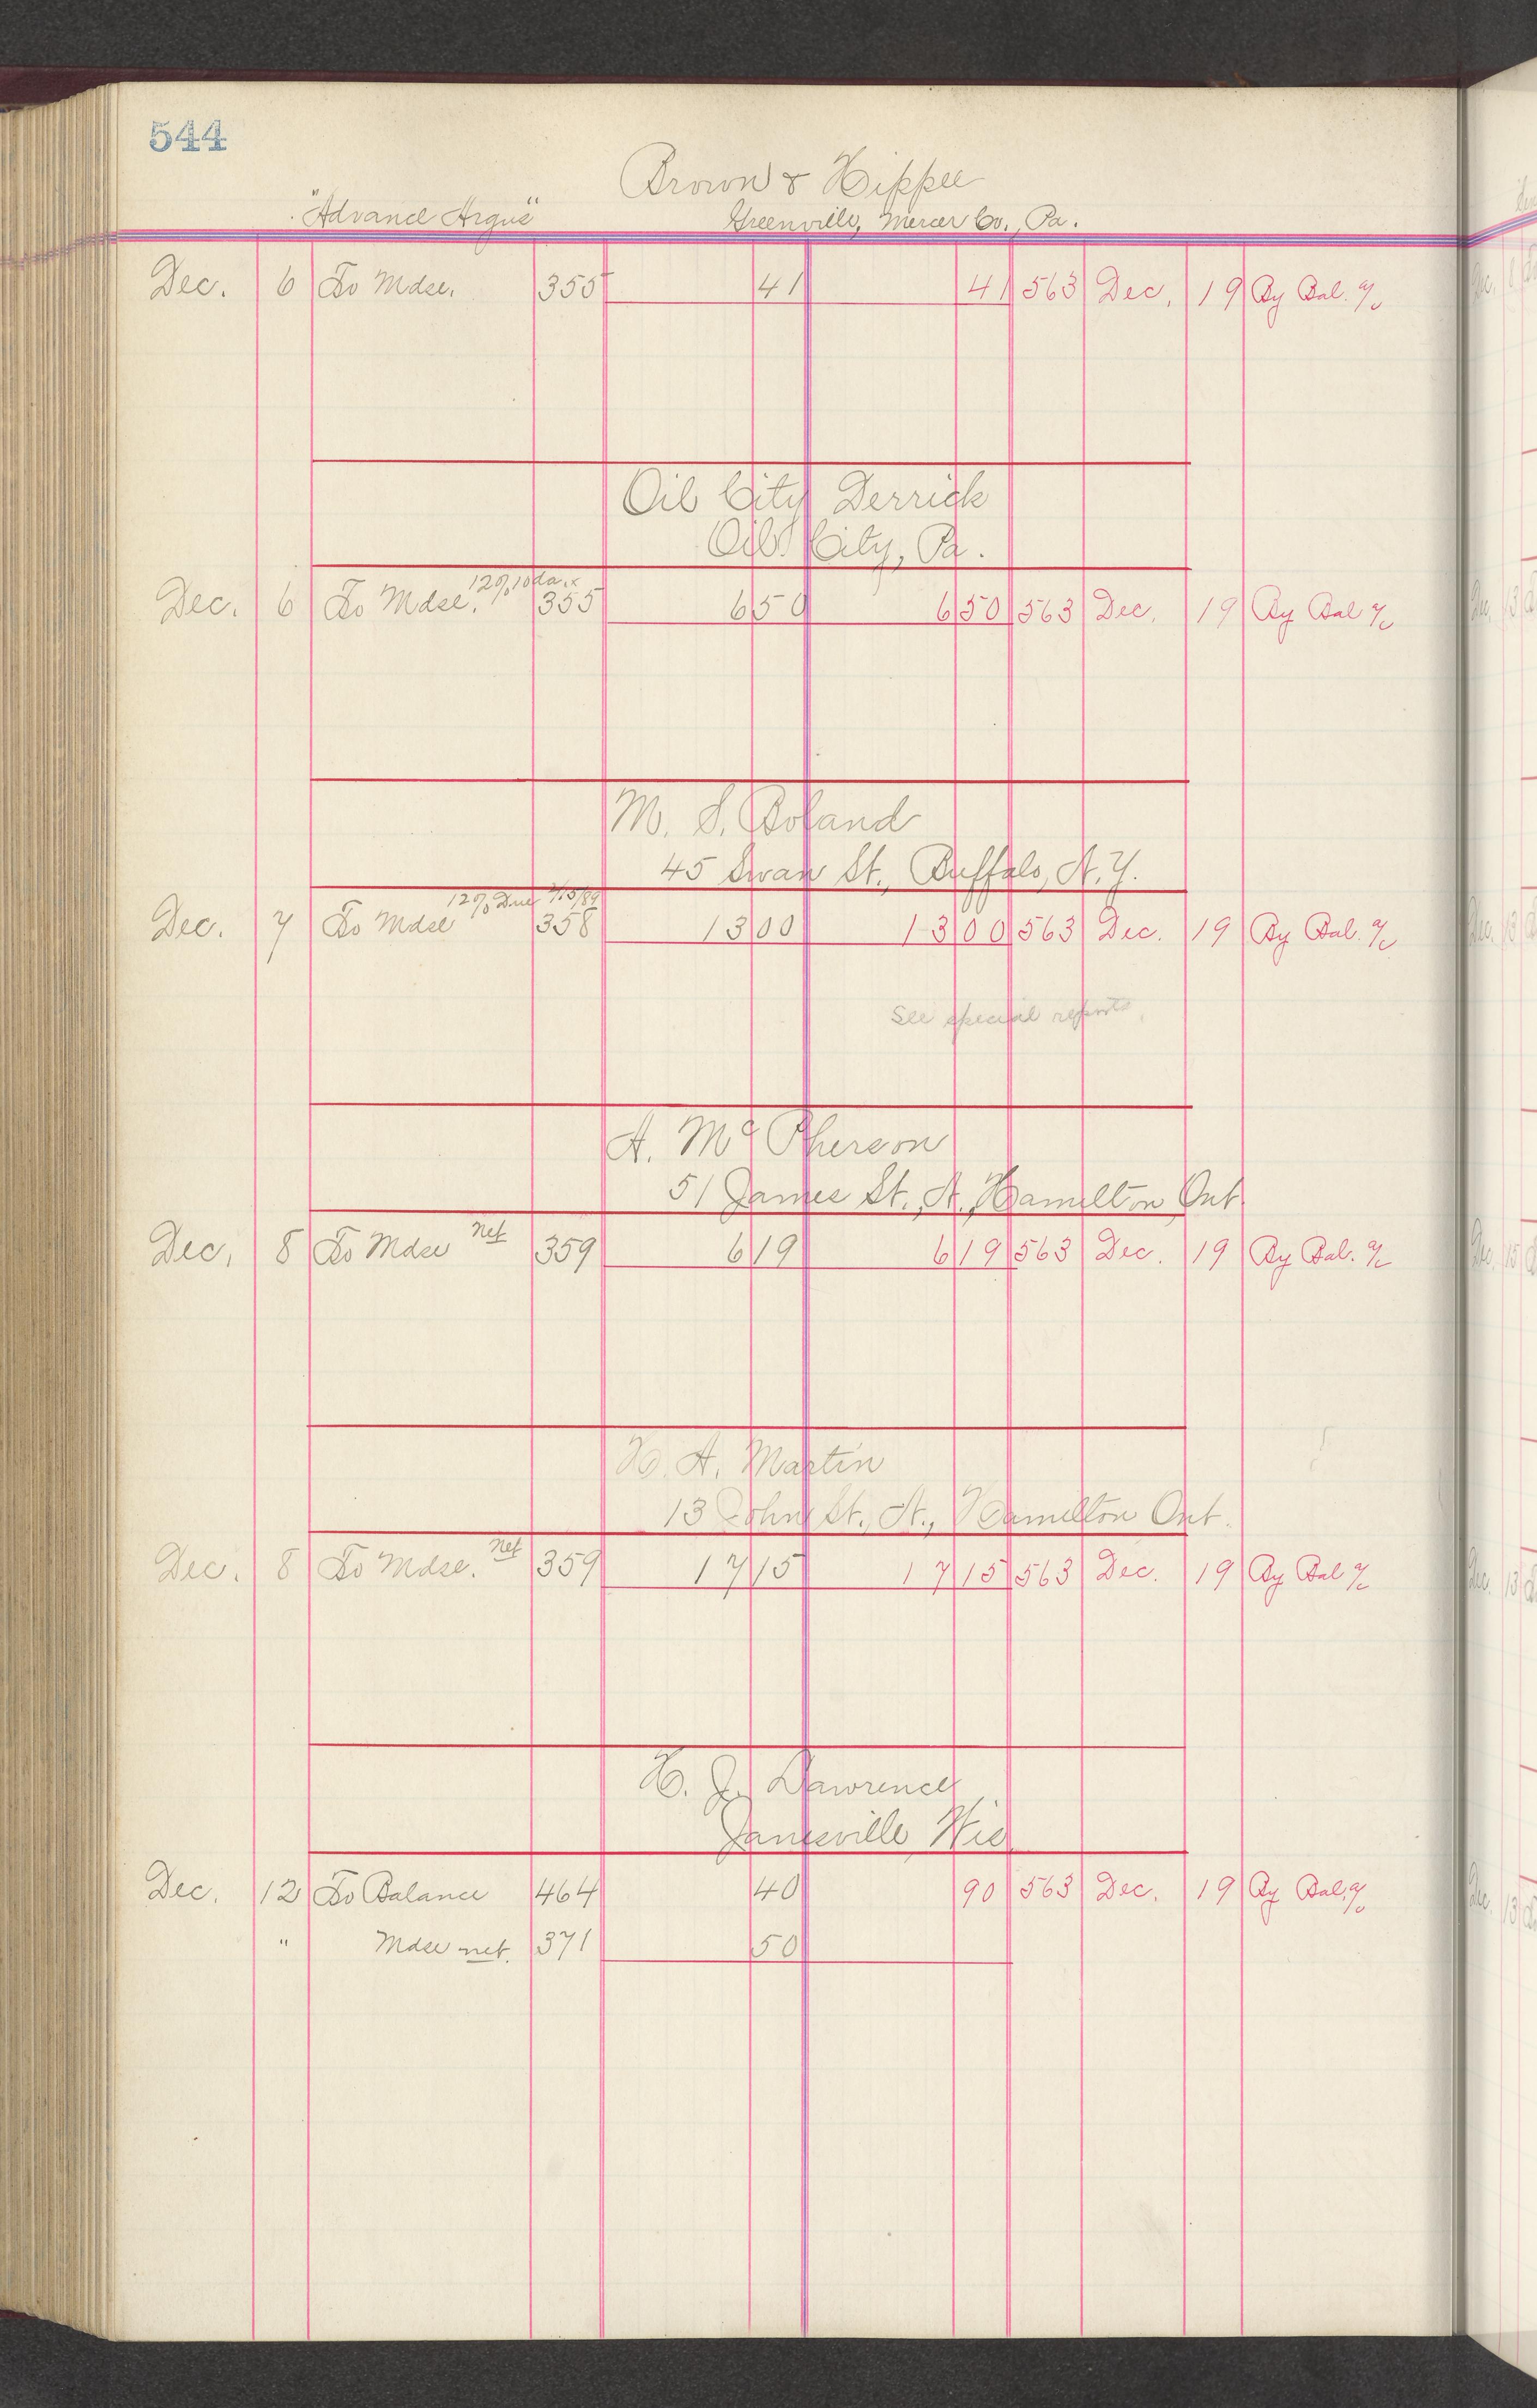 544
Brown & Hippee
"Advance Argus" Greenville, Mercer Co., Pa.
Dec. 6 To Mdse. 355 41 41 563 Dec. 19 By Bal. a/c
Oil City Derrick
Oil City, Pa.
12% 10 da.
Dec. 6 To Mdse. 355 6 50 6 50 563 Dec. 19 By Bal a/c
M. S. Boland
45 Swan St., Buffalo, N.Y.
12% Due 2/15/89
Dec. 7 To Mdse 358 13 00 13 00 563 Dec. 19 By Bal. a/c
See special reports.
A. Mc Pherson
51 James St., N., Hamilton Ont
Dec. 8 To Mdse net 359 6 19 6 19 563 Dec. 19 By Bal. a/c
H. A. Martin
13 John St., N., Hamilton Ont.
Dec. 8 To Mdse. net 359 17 15 17 15 563 Dec. 19 By Bal a/c
H. J. Lawrence
Janesville Wis
Dec. 12 To Balance 464 40 90 563 Dec. 19 By Bal. a/c
" Mdse net. 371 50